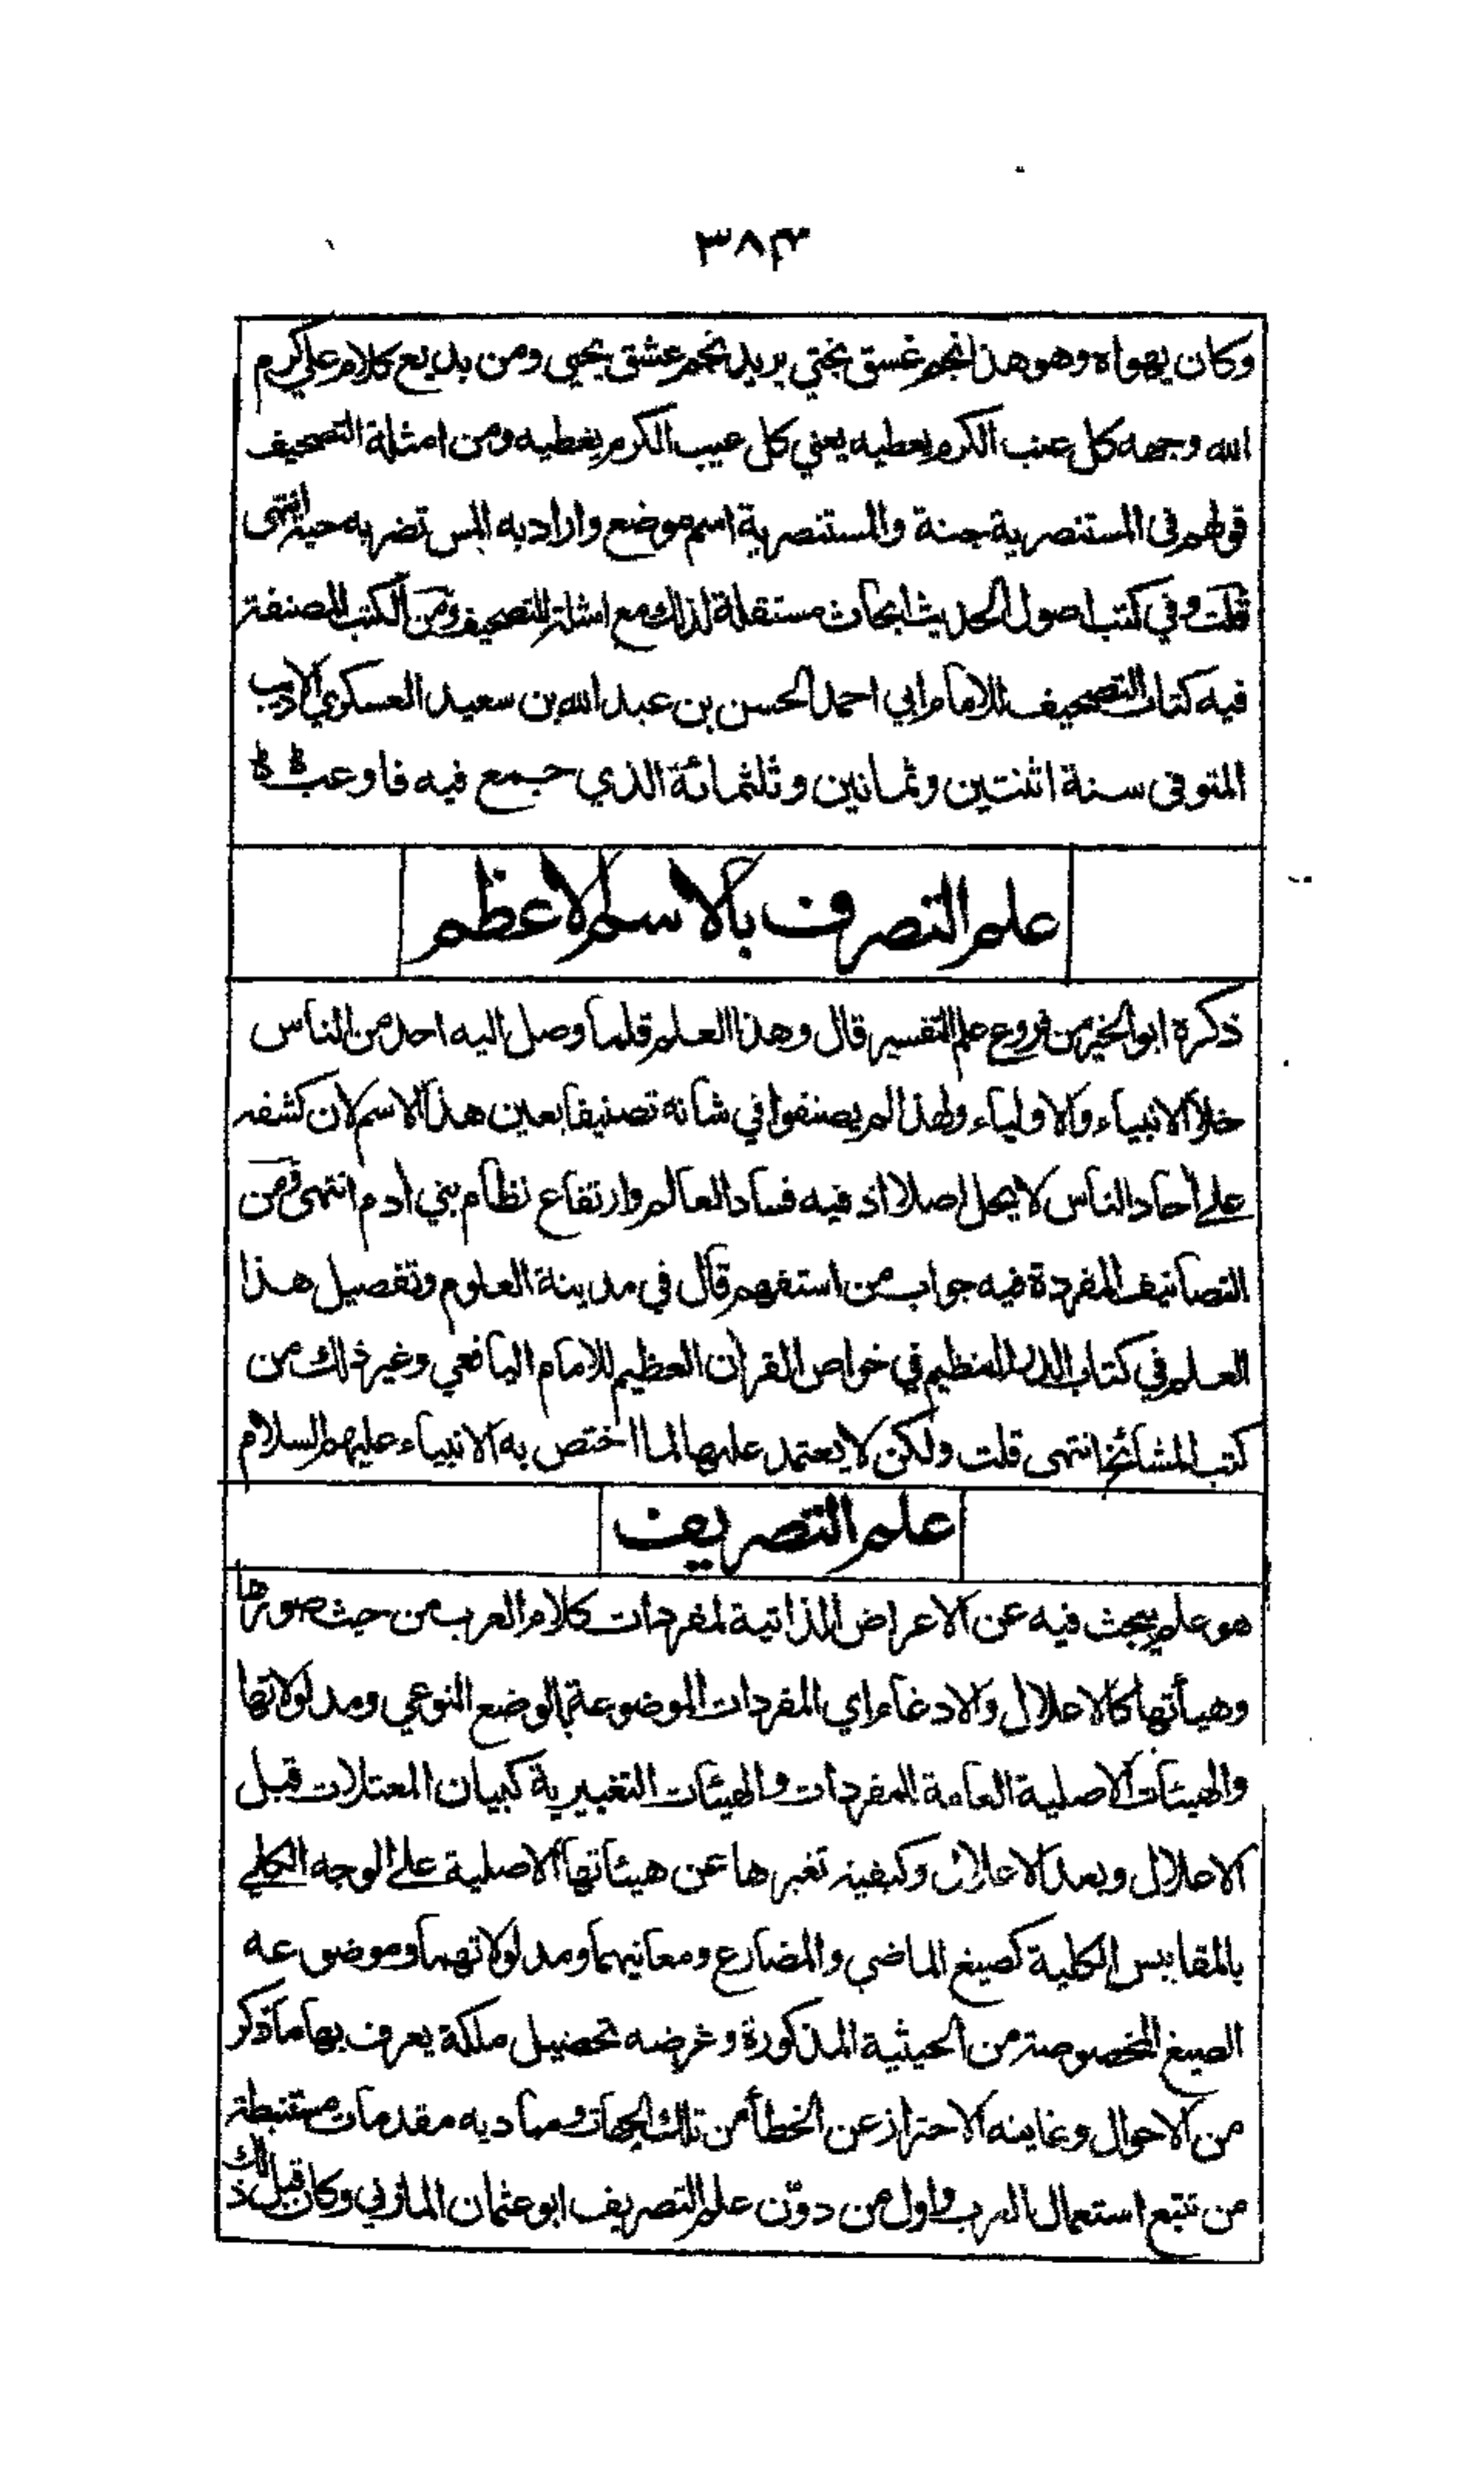 ٣٨٤
وكان يهواه وهو هذا نجم غسق بختي يريد نجم عشق يحيى ومن بديع كلام علي كرم
الله وجهه كل عنب الكرم يعطيه يعني كل عيب الكرم يغطيه ومن امثلة التصحيف
قولهم في المستنصرية جنة والمستنصرية اسم موضع واراد به المس تضربه حية انتهى
قلت وفي كتب اصول الحديث ابحاث مستقلة لذلك مع امثلة التصحيف ومن الكتب المصنفة
فيه كتاب التصحيف للامام ابي احمد الحسن بن عبد الله بن سعيد العسكري الاديب
المتوفى سنة اثنتين وثمانين وثلثمائة الذي جمع فيه فاوعب
علم التصرف بالاسم الاعظم
ذكره ابو الخير من فروع علم التفسير قال وهذا العلم قلما وصل اليه احد من الناس
خلا الانبياء والاولياء ولهذا لم يصنفوا في شانه تصنيفا بعين هذا الاسم لان كشفه
على أحاد الناس لا يحل اصلا اذ فيه فساد العالم وارتفاع نظام بني ادم انتهى ومن
التصانيف المفردة فيه جواب من استفهم قال في مدينة العلوم وتفصيل هذا
العلم في كتاب الدر المنظيم في خواص القران العظيم للامام اليافعي وغير ذلك من
كتب المشائخ انتهى قلت ولكن لا يعتمد عليها لما اختص به الانبياء عليهم السلام
علم التصريف
هو علم يبحث فيه عن الاعراض الذاتية لمفردات كلام العرب من حيث صورتها
وهيأتها كالاعلال والادغام اي المفردات الموضوعة بالوضع النوعي ومدلولاتها
والهيئات الاصلية العامة للمفردات والهيئات التغييرية كبيان المعتلات قبل
الاعلال وبعد الاعلال وكيفية تغيرها عن هيئاتها الاصلية على الوجه الكلي
بالمقاييس الكلية كصيغ الماضي والمضارع ومعانيهما ومدلولاتهما وموضوعه
الصيغ المخصوصة من الحيثية المذكورة وغرضه تحصيل ملكة يعرف بها ما ذكر
من الاحوال وغايته الاحتراز عن الخطأ من تلك الجهات ومباديه مقدمات مستنبطة
من تتبع استعمال العرب واول من دوّن علم التصريف ابو عثمان المازني وكان قبل ذلك